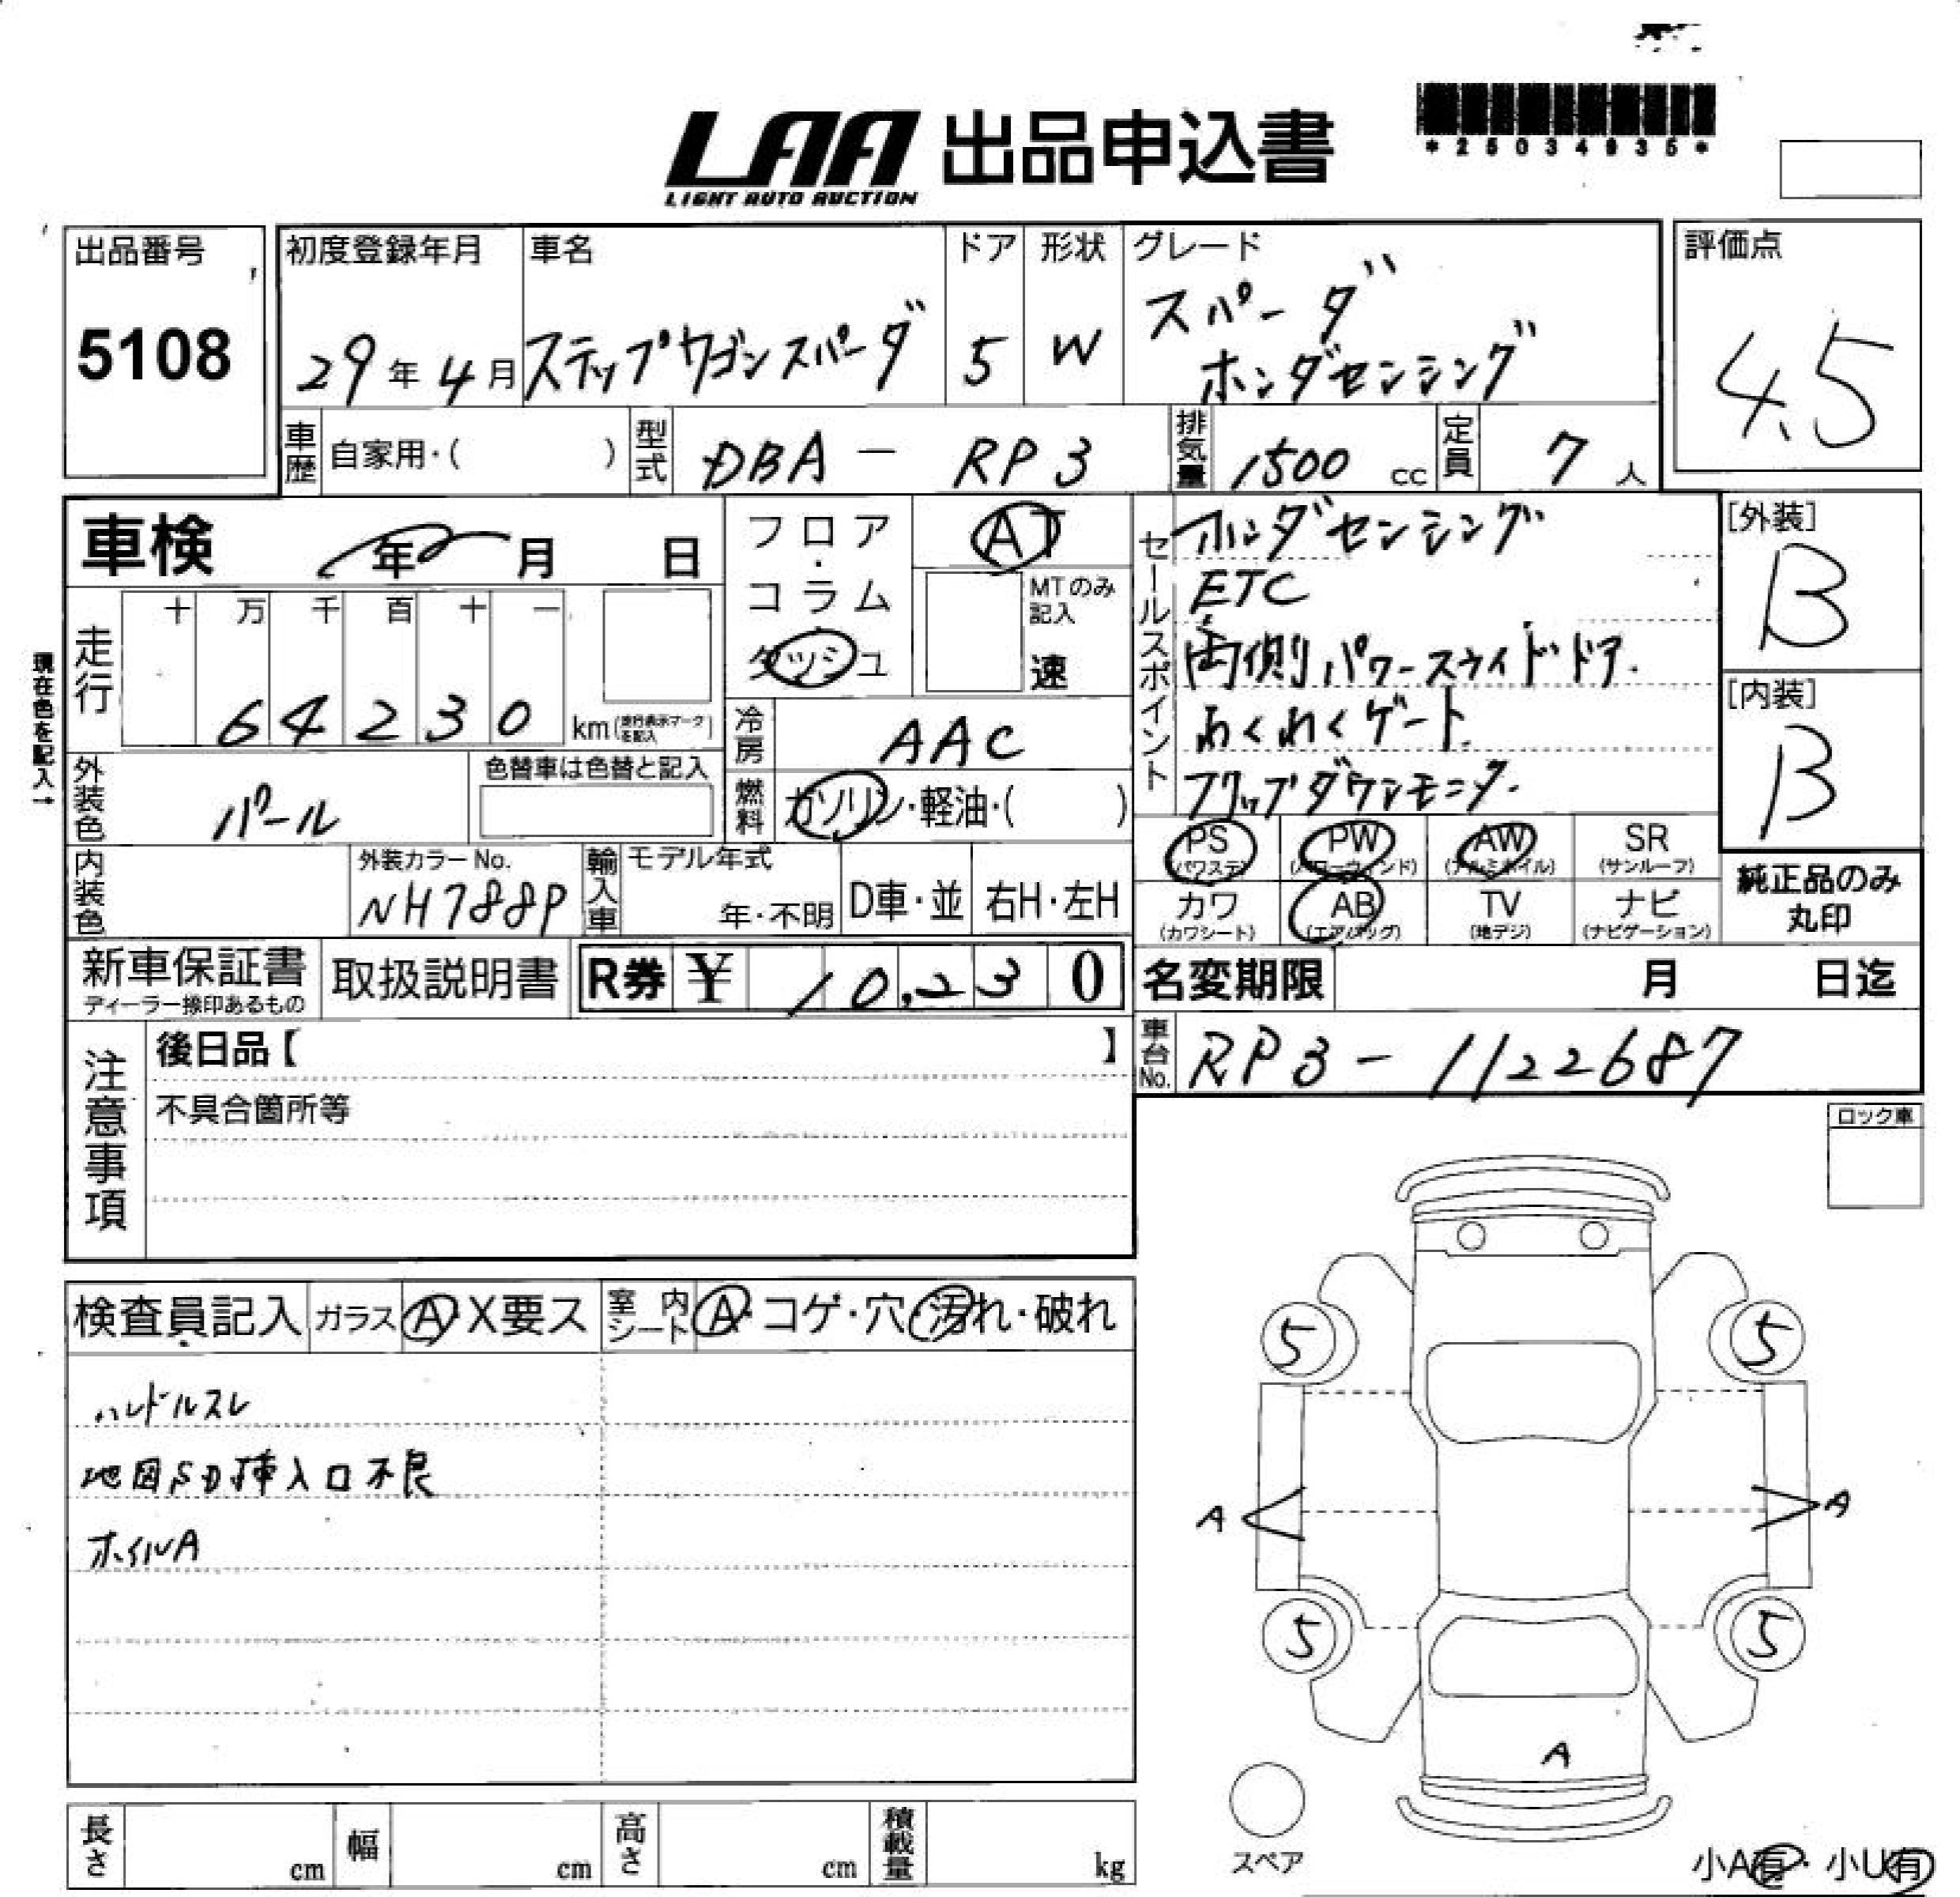 *25034935*
LAA 出品申込書
LIGHT AUTO AUCTION
出品番号
5108
初度登録年月
29年4月
車名
ステップワゴンスパーダ
ドア
5
形状
W
グレード
スパーダ
ホンダセンシング
評価点
4.5
車歴 自家用・( )
型式 DBA - RP3
排気量 1500 cc
定員 7 人
車検 年 月 日
走行 十 万 千 百 十 一
64230 km(走行表示マークを記入)
現在色を記入→
外装色 パール
色替車は色替と記入
内装色
外装カラーNo.
NH788P
輸入車 モデル年式
年・不明 D車・並 右H・左H
フロア・コラム
ダッシュ
AT
MTのみ記入
速
冷房 AAC
燃料 ガソリン・軽油・( )
セールスポイント
ホンダセンシング
ETC
両側パワースライドドア.
わくわくゲート
フリップダウンモニター
[外装]
B
[内装]
B
PS (パワステ) PW (パワーウィンド) AW (アルミホイル) SR (サンルーフ)
カワ (カワシート) AB (エアバッグ) TV (地デジ) ナビ (ナビゲーション)
純正品のみ
丸印
新車保証書
ディーラー捺印あるもの
取扱説明書
R券 ¥ 10,230
名変期限 月 日迄
車台No. RP3-1122687
注意事項
後日品【 】
不具合箇所等
ロック車
検査員記入 ガラス A・X要ス 室内シート A・コゲ・穴・汚れ・破れ
ハンドルスレ
地図SD挿入口不良
ホイルA
5 5
A A
5 5
A
スペア
長さ cm 幅 cm 高さ cm 積載量 kg
小A有・小U有